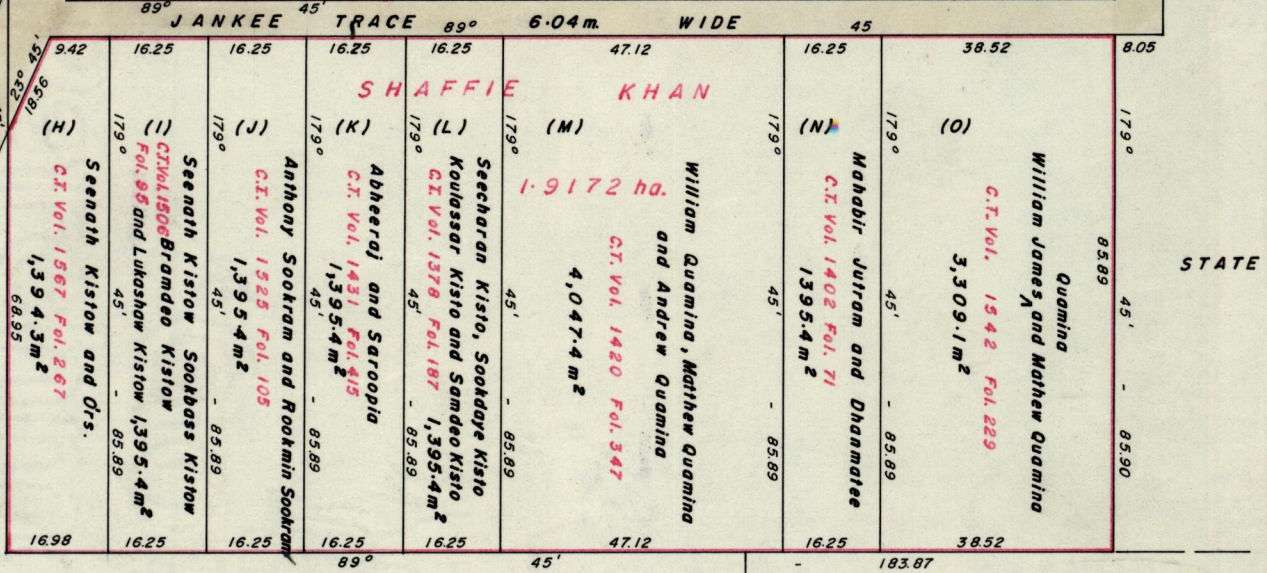 89° 45'
JANKEE TRACE 89° 6·04m. WIDE 45
9.42 16.25 16.25 16.25 16.25 47.12 16.25 38.52 8.05
23° 45'
18.56
SHAFFIE KHAN
1·9172 ha.
(H)
Seenath Kistow and Ors.
C.T. Vol. 1567 Fol. 267
1,394.3m²
68.95
179° 45' - 85.89
(I)
Seenath Kistow Sookbass Kistow
C.T. Vol. 1506 Bramdeo Kistow
Fol. 95 and Lukashaw Kistow 1,395.4m²
179° 45' - 85.89
(J)
Anthony Sookram and Rookmin Sookram
C.T. Vol. 1525 Fol. 105
1,395·4m²
179° 45' - 85.89
(K)
Abheeraj and Satroopia
C.T. Vol. 1431 Fol. 415
1,395·4m²
179° 45' - 85.89
(L)
Seecharan Kisto, Sookdaye Kisto
Koulassar Kisto and Samdeo Kisto
C.T. Vol. 1378 Fol. 187 1,395·4m²
179° 45' - 85.89
(M)
William Quamina, Mathew Quamina
and Andrew Quamina
C.T. Vol. 1420 Fol. 347
4,047.4m²
179° 45' - 85.89
(N)
Mahabir Jutram and Dhanmatee
C.T. Vol. 1402 Fol. 71
1395.4m²
179° 45' - 85.89
(O)
Quamina
William James ^ and Mathew Quamina
C.T. Vol. 1542 Fol. 229
3,309.1m²
85.89
179° 45' - 85.90
STATE
16.98 16.25 16.25 16.25 16.25 47.12 16.25 38.52
89° 45' - 183.87